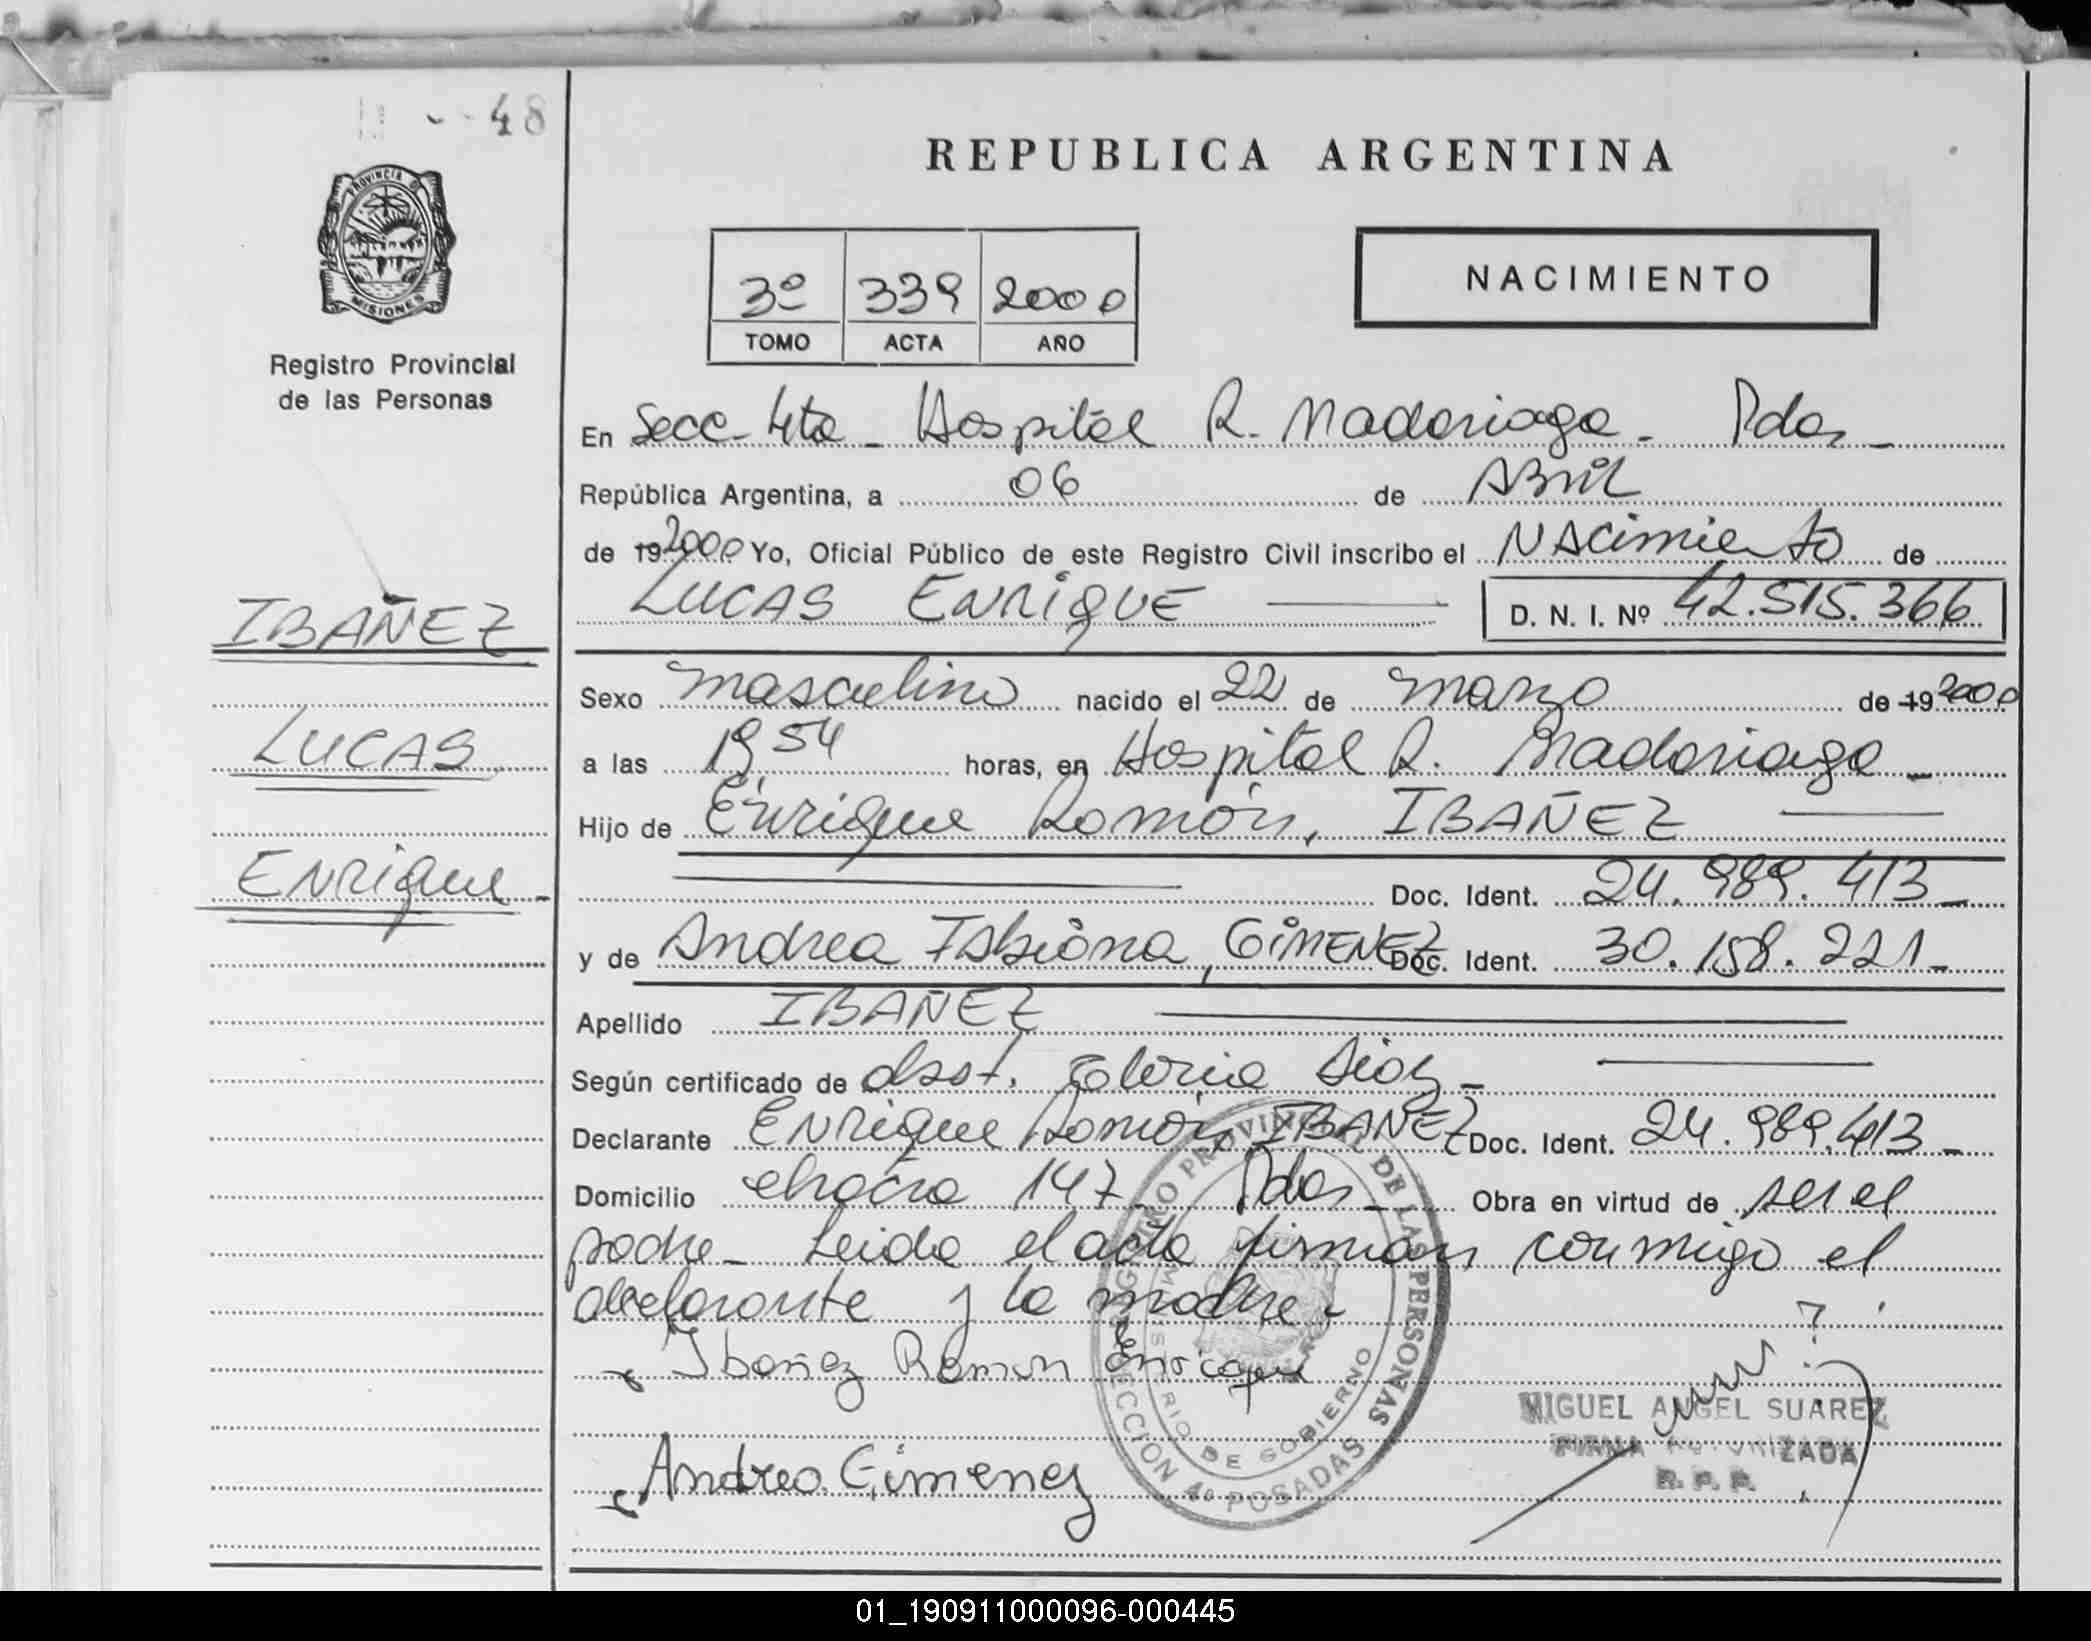 48
REPUBLICA ARGENTINA
PROVINCIA DE
MISIONES
Registro Provincial
de las Personas
3º 339 2000
TOMO ACTA AÑO
NACIMIENTO
En Secc. 4ta - Hospital R. Madariaga - Pdas -
República Argentina, a 06 de Abril
de 19 2000 Yo, Oficial Público de este Registro Civil inscribo el NAcimiento de
LUCAS ENRIQUE D. N. I. Nº 42.515.366
IBAÑEZ
LUCAS
ENRique -
Sexo masculino nacido el 22 de marzo de 19 2000
a las 19,54 horas, en Hospital R. Madariaga -
Hijo de Enrique Ramón, IBAÑEZ
Doc. Ident. 24.989.413 -
y de Andrea Fabiana, GiMENEZ Doc. Ident. 30.158.221 -
Apellido IBAÑEZ
Según certificado de obst. Gloria Diaz -
Declarante ENRique Ramón IBAÑEZ Doc. Ident. 24.989.413 -
Domicilio chacra 147 Pdas - Obra en virtud de ser el
padre - Leida el acta firman conmigo el
declarante y la madre -
Ibañez Ramon Enrique
Andrea Gimenez
REGISTRO PROVINCIAL DE LAS PERSONAS
MINISTERIO DE GOBIERNO
SECCION 4º POSADAS
MIGUEL ANGEL SUAREZ
FIRMA AUTORIZADA
R. P. P.
01_190911000096-000445